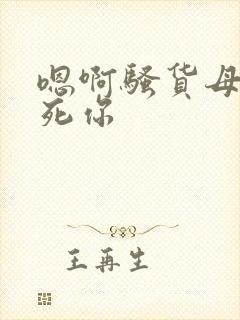 嗯啊骚货母
死你
王再生